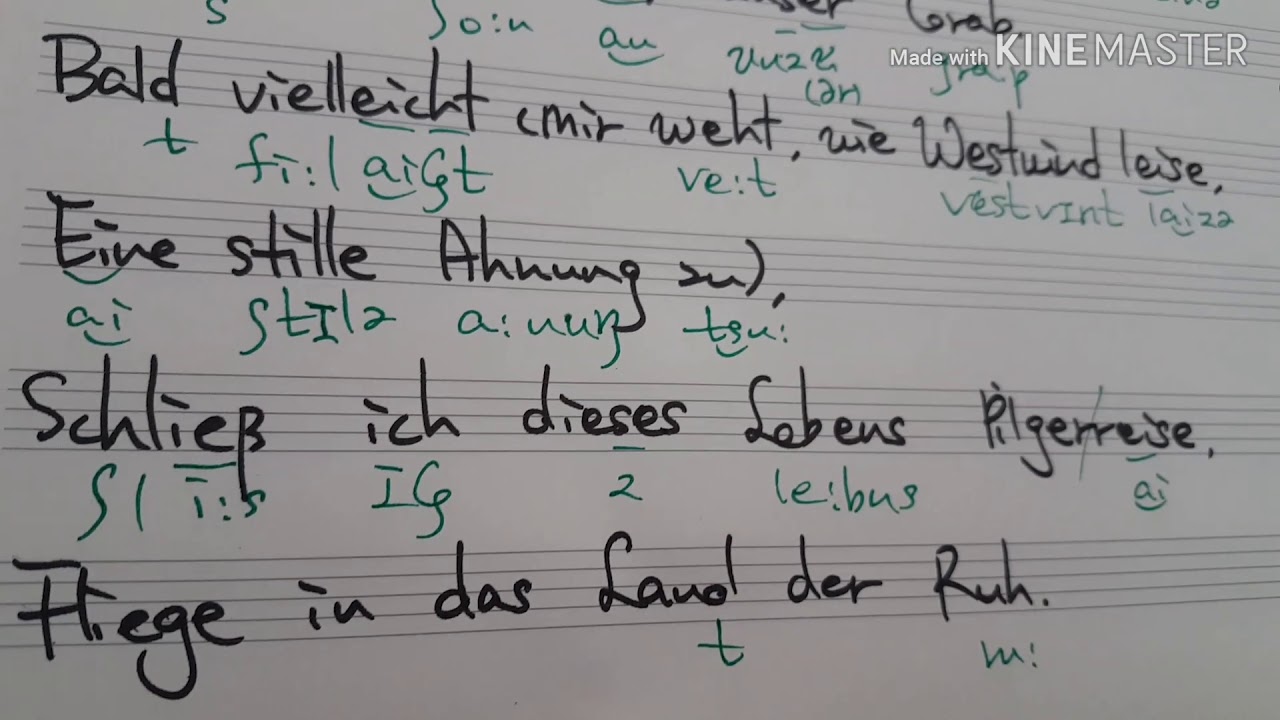 s ʃo:n au unzɐ grap
unser Grab
Made with KINEMASTER
(ər)
Bald vielleicht (mir weht, wie Westwind leise,
t fi:l aiçt ve:t vɛstvɪnt laizə
Eine stille Ahnung zu),
ai ʃtɪlə a:nuŋ tsu:
Schließ ich dieses Lebens Pilgerreise,
ʃl i:s ɪç z le:bns ai
Fliege in das Land der Ruh.
t u: